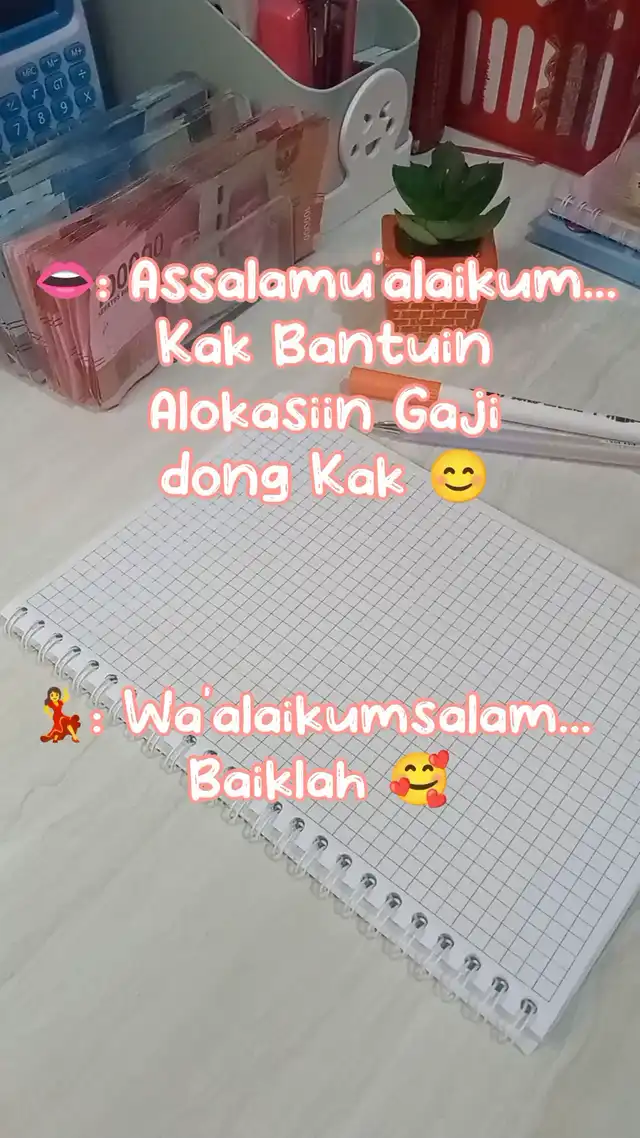 MRC M- M+
+/- √ GT ÷
7 8 9 X
00000
👄: Assalamu'alaikum...
Kak Bantuin
Alokasiin Gaji
dong Kak 😊
💃: Wa'alaikumsalam...
Baiklah 🥰